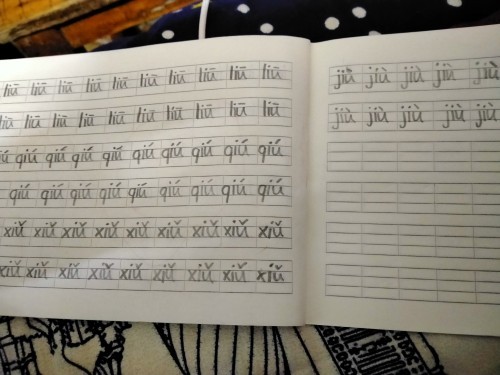 liū liū liū liū liū liū liū liū liū liū
liū liū liū liū liū liū liū liū liū liū
qiú qiú qiú qiú qiú qiú qiú qiú qiú
qiú qiú qiú qiú qiú qiú qiú qiú qiú
xiǔ xiǔ xiǔ xiǔ xiǔ xiǔ xiǔ xiǔ xiǔ
xiǔ xiǔ xiǔ xiǔ xiǔ xiǔ xiǔ xiǔ xiǔ
jiù jiù jiù jiù jiù
jiù jiù jiù jiù jiù